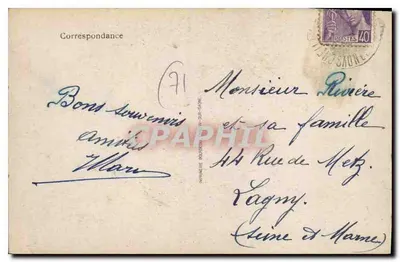 Correspondance
POSTES 40
71
Monsieur Rivière
et sa famille
44 Rue de Metz
Lagny
(Seine et Marne)
Bons souvenirs
amitiés
CPAPHIL